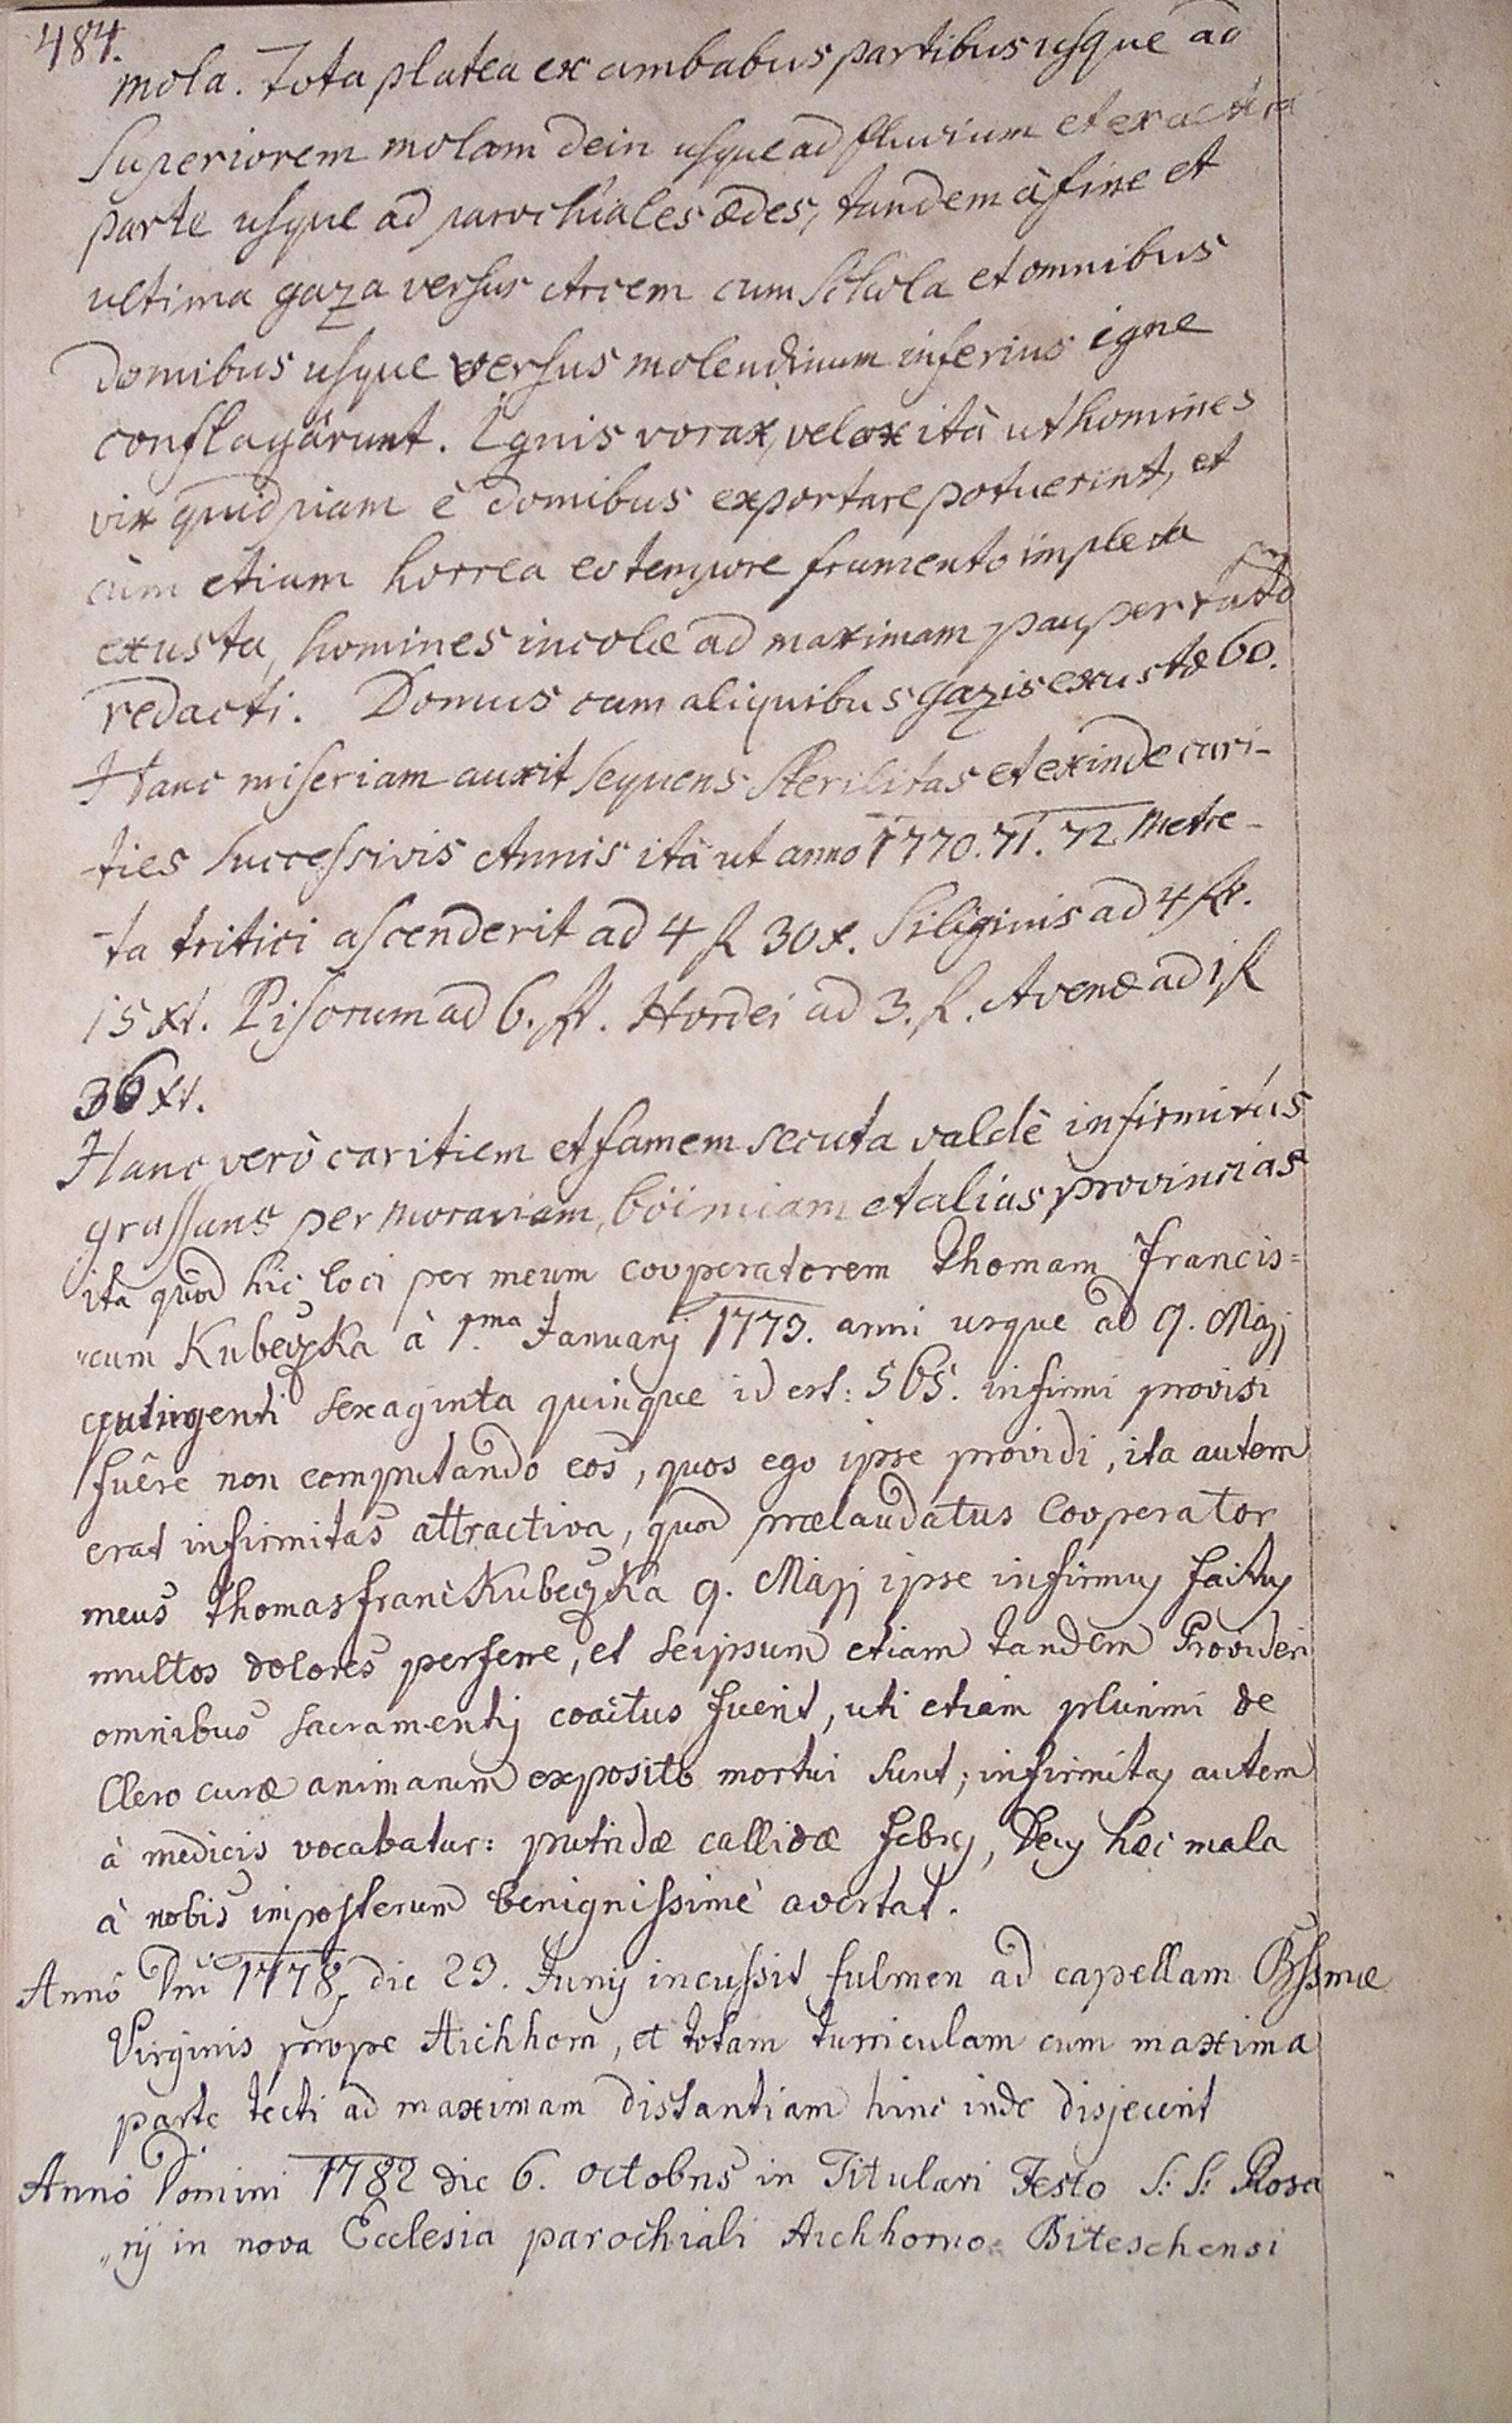 484.
mola. Tota platea ex ambabus partibus usque ad
Superiorem molam dein usque ad fluvium et ex altera
parte usque ad parochiales ædes, tandem à fine et
ultima gaza versus Arcem cum Schola et omnibus
domibus usque versus molendinum inferius igne
conflagârunt. Ignis vorax, velox ità ut homines
vix quidpiam è domibus exportare potuerint, et
cùm etiam horrea eo tempore frumento impleta
exusta, homines incolæ ad maximam paupertatem
redacti. Domus cum aliquibus gazis exustæ 60.
Hanc miseriam auxit sequens sterilitas et exinde cari-
ties successivis Annis ità ut anno 1770. 71. 72. Metre-
ta tritici ascenderit ad 4 fl 30 x. Siliginis ad 4 fl.
15 xr. Pisorum ad 6. fl. Hordei ad 3. fl. Avenæ ad 1 fl
36 xr.
Hanc verò caritiem et famem secuta valdè infirmitas
grassans per Moraviam, Boëmiam et alias provincias
ita quod hic loci per meum cooperatorem Thomam Francis=
"cum Kubeczka à 1.ma Januarij 1773. anni usque ad 9. Maij
quingenti sexaginta quinque id est: 565. infirmi provisi
fuêre non computando eos, quos ego ipse providi, ita autem
erat infirmitas attractiva, quod prælaudatus Cooperator
meus Thomas Franc Kubeczka 9. Maij ipse infirmus factus
multos dolores perferre, et seipsum etiam tandem Provideri
omnibus sacramentis coactus fuerit, uti etiam plurimi de
Clero curæ animarum exposito mortui sunt; infirmitas autem
à medicis vocabatur: putridæ callidæ febres, Deus hæc mala
à nobis imposterum benignissimè avertat.
Annô Dni 1778, die 23. Junij incussit fulmen ad capellam Bssmæ
Virginis prope Aichhorn, et totam turriculam cum maxima
parte tecti ad maximam distantiam hinc inde disjecerit
Annô Domini 1782 die 6. octobris in Titulari Festo S: S: Rosa
"rij in nova Ecclesia parochiali Aichhorno- Biteschensi